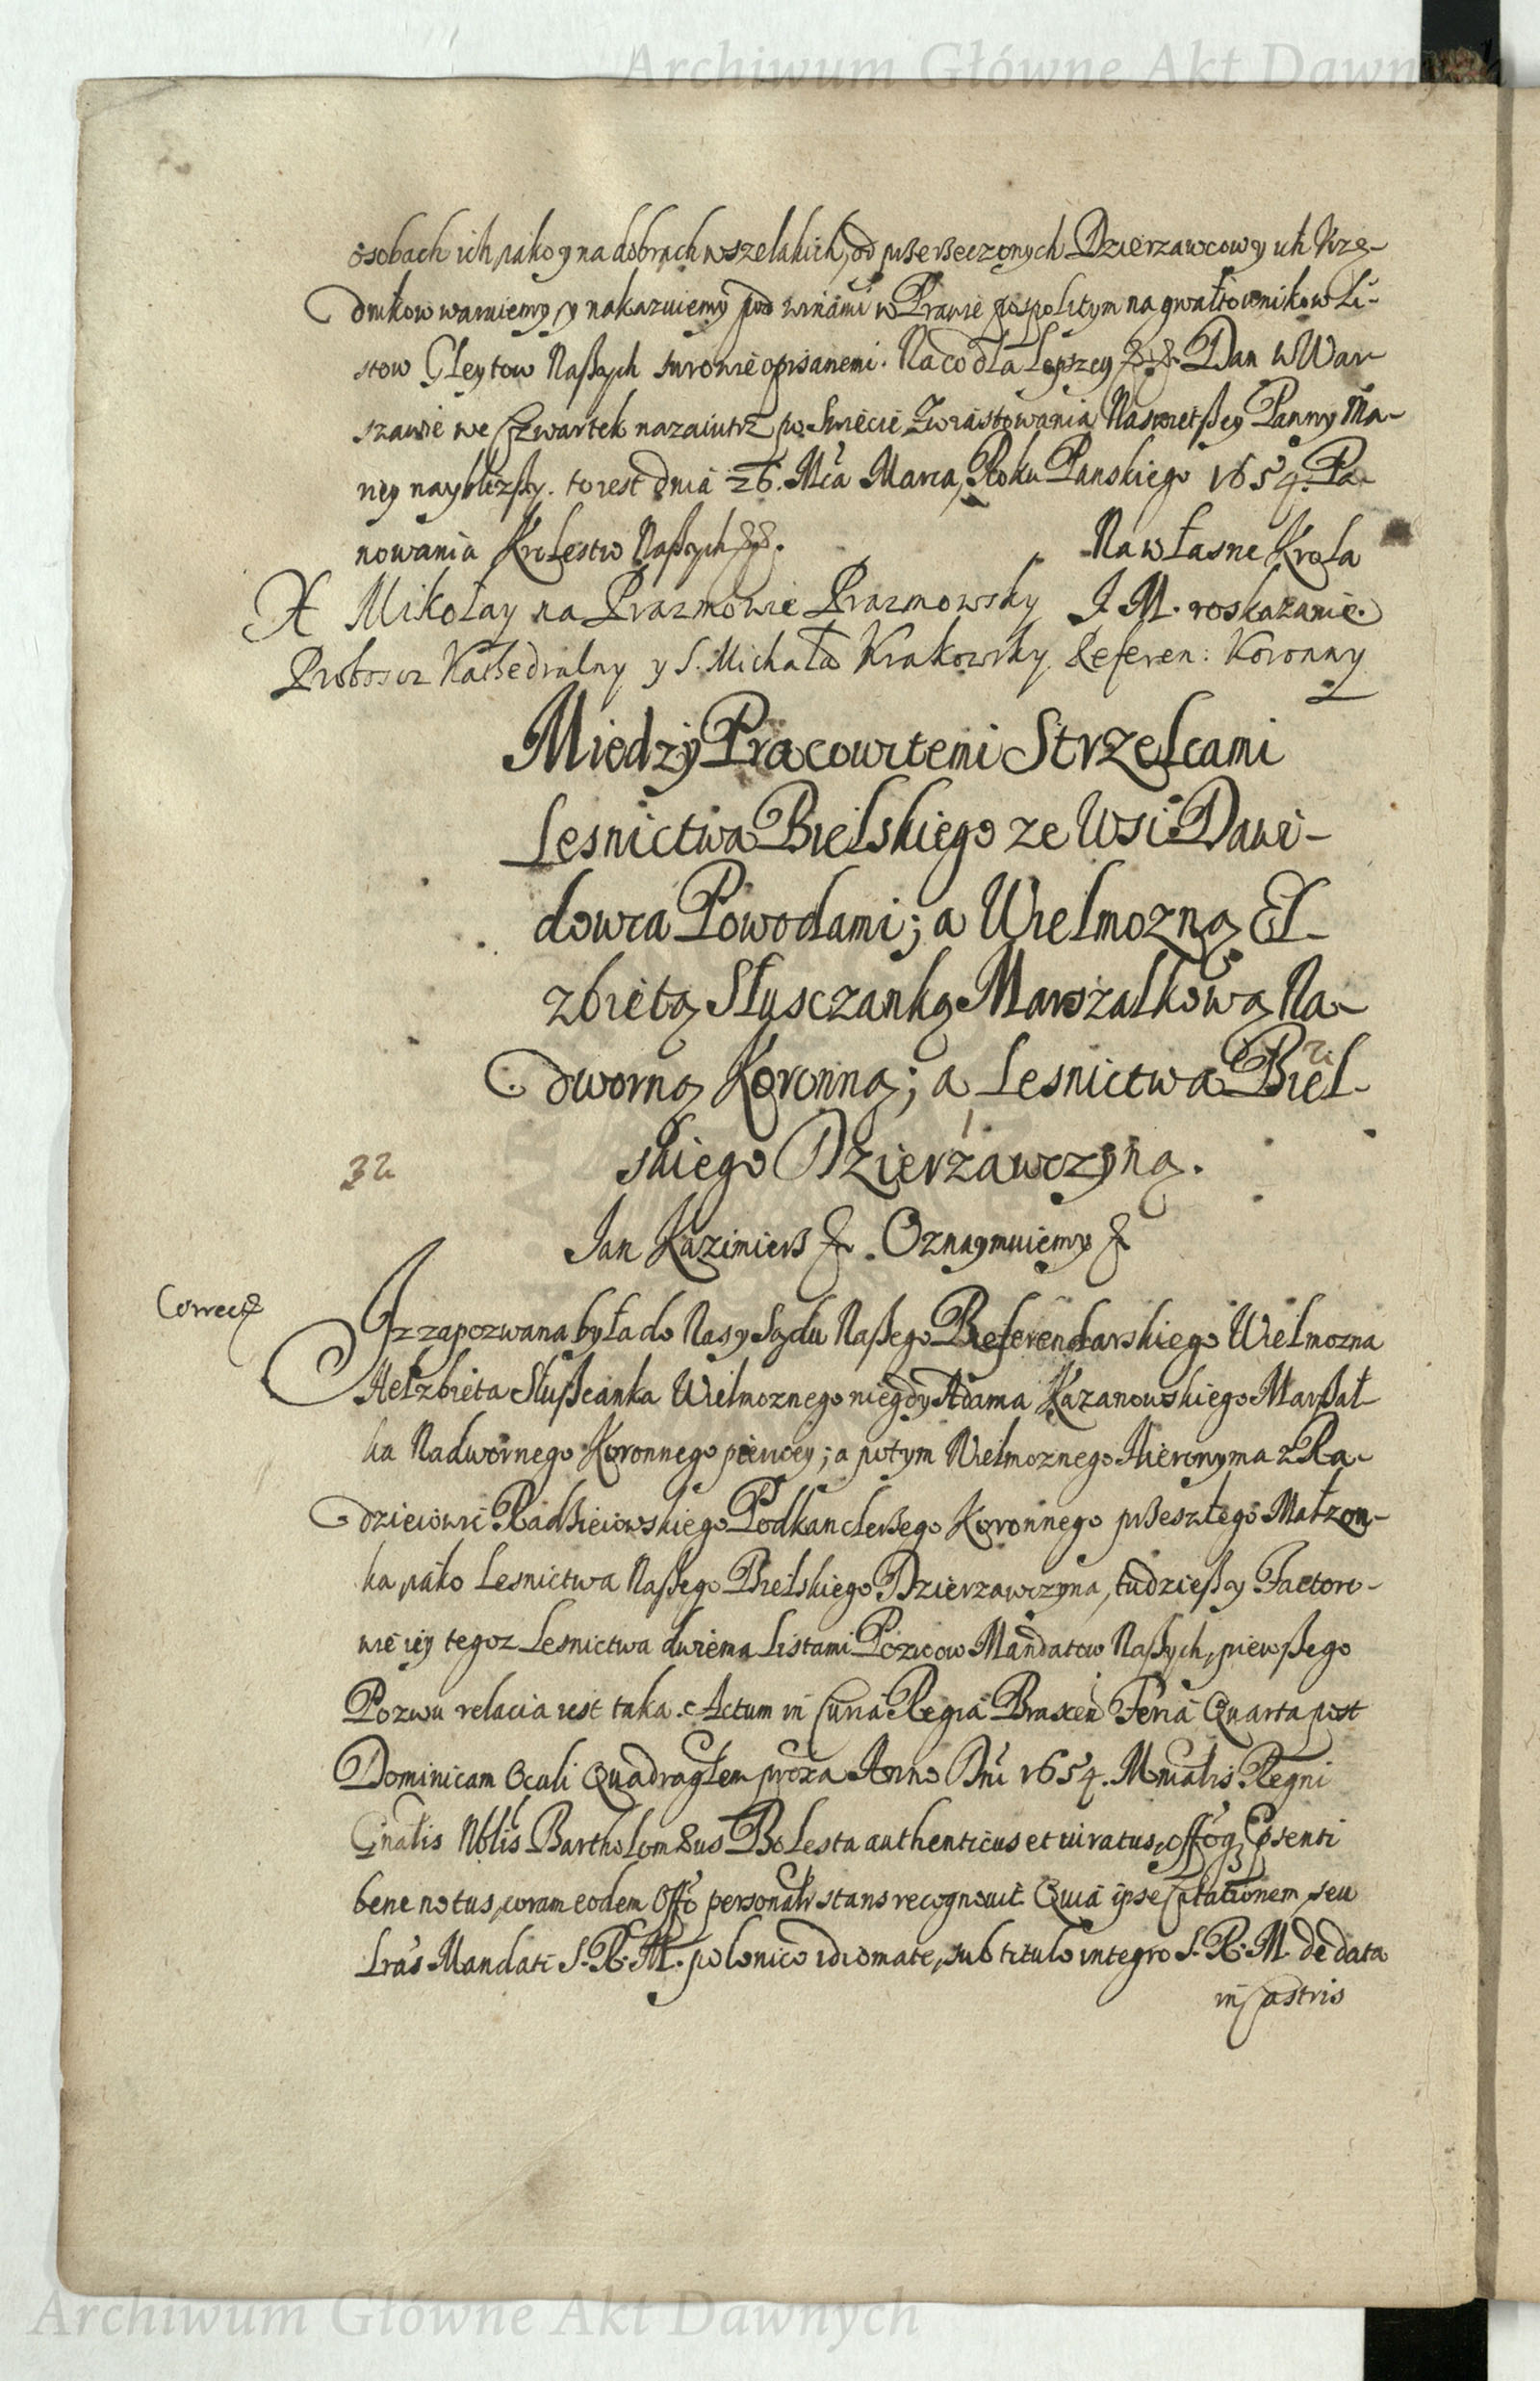 Archiwum Główne Akt Dawnych
osobach ich, iako y na dobrach wszelakich, od przerzeczonych Dzierzawcow y ich Vrzę-
dnikow waruiemy, y nakazuiemy pod winami w Prawie pospolitym na gwałtownikow Li-
stow Gleytow Naszych surowie opisanemi. Na co dla lepszey &c. &c. Dan w War-
szawie we Czwartek nazaiutrz po Swięcie Zwiastowania Naswiętszey Panny Ma-
riey naybliższy. to iest dnia 26. Mca Marca, Roku Panskiego 1654. Pa-
nowania Krolestw Naszych &&.
Na własne Krola
X Mikołay na Prazmowie Prazmowsky J. M. roskazanie.
Proboscz Kathedralny y S. Michała Krakowsky Referen: Koronny
Między Pracowitemi Strzelcami
Lesnictwa Bielskiego ze Wsi Dawi-
dowca Powodami; a Wielmozną El-
zbietą Słusczanką Marszalkową Na-
dworną Koronną; a Lesnictwa Biel-
skiego Dzierżawczyną.
32
Jan Kazimierz &. Oznaymuiemy &
Correcta
Iz zapozwana była do Nas y Sądu Naszego Referendarskiego Wielmozna
Helzbieta Słuszcanka Wielmoznego niegdy Adama Kazanowskiego Marszał-
ka Nadwornego Koronnego pierwey; a potym Wielmoznego Hieronyma z Ra-
dzieiowic Radzieiowskiego Podkanclerzego Koronnego przeszłego Małzon-
ka, iako Lesnictwa Naszego Bielskiego Dzierzawczyna, tudziesz y Factoro-
wie iey tegoz Lesnictwa dwiema Listami Pozwow Mandatow Naszych, pierwszego
Pozwu relacia iest taka. Actum in Curia Regia Branscen Feria Quarta post
Dominicam Oculi Quadraglem proxa Anno Dni 1654. Mnialis Regni
Gnalis Nblis Bartholomaeus Bolesta authenticus et iuratus, offoq psenti
bene notus, coram eodem Offo personalr stans recognouit. Quia ipse Citationem, seu
Lras Mandati S. R. M. polonico idiomate, sub titulo integro S. R. M. de data
in Castris
Archiwum Główne Akt Dawnych